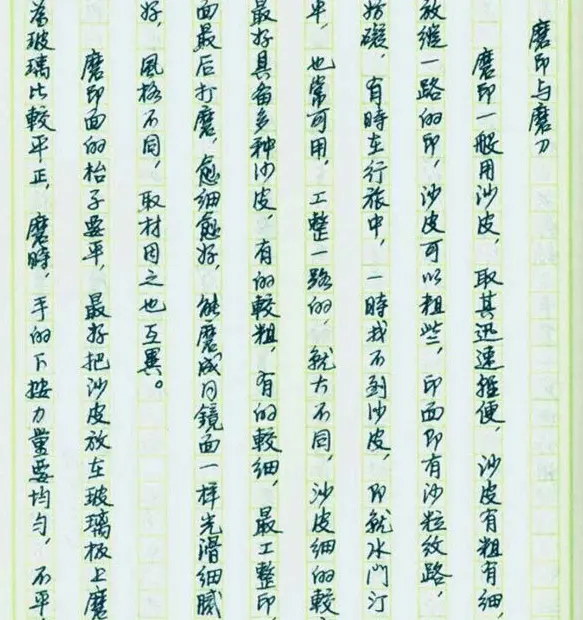 磨印与磨刀
磨印一般用沙皮，取其迅速捷便，沙皮有粗有细，
放縱一路的印，沙皮可以粗些，印面即有沙粒纹路，
妨礙，有時在行旅中，一時找不到沙皮，即就水門汀
平，也常可用，工整一路的，就大不同，沙皮细的較
最好具备多种沙皮，有的較粗，有的較细，最工整印，
面最后打磨，愈细愈好，能磨成同鏡面一样光滑细腻
好，風格不同，取材因之也互異。
磨印面的枱子要平，最好把沙皮放在玻璃板上磨
為玻璃比較平正，磨時，手的下按力量要均匀，不平，